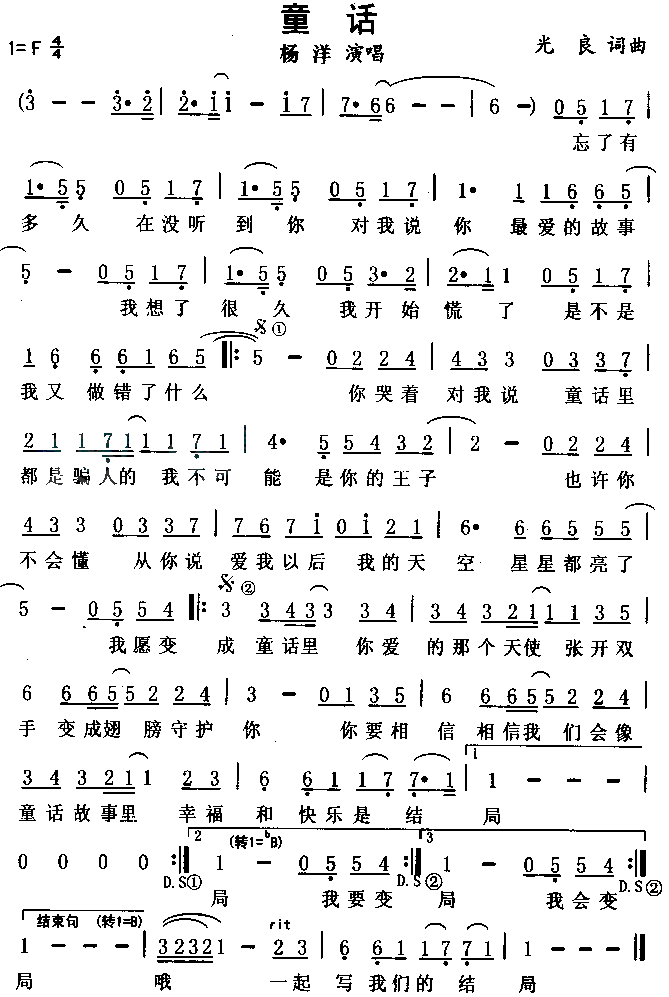 童 话
1=F 4/4 杨 洋 演唱 光 良 词曲
(3 - - 3·2 | 2·1 1 - 17 | 7·6 6 - - | 6 - ) 0 5 1 7 |
忘了有
1·5 5 0 5 1 7 | 1·5 5 0 5 1 7 | 1· 1 1 6 6 5 |
多 久 在没听 到 你 对我说 你 最爱的故事
5 - 0 5 1 7 | 1·5 5 0 5 3·2 | 2·1 1 0 5 1 7 |
我想了 很 久 我开始慌 了 是不是
𝄋①
1 6 6 6 1 6 5 ‖: 5 - 0 2 2 4 | 4 3 3 0 3 3 7 |
我又 做错了什么 你哭着 对我说 童话里
2 1 1 7 1 1 1 7 1 | 4· 5 5 4 3 2 | 2 - 0 2 2 4 |
都是骗人的 我不可 能 是你的王子 也许你
4 3 3 0 3 3 7 | 7 6 7 1 0 1 2 1 | 6· 6 6 5 5 5 |
不会懂 从你说 爱我以后 我的天 空 星星都亮了
𝄋②
5 - 0 5 5 4 ‖: 3 3 4 3 3 3 3 4 | 3 4 3 3 2 1 1 1 3 5 |
我愿变 成 童话里 你爱 的那个天使 张开双
6 6 6 5 5 2 2 4 | 3 - 0 1 3 5 | 6 6 6 5 5 2 2 4 |
手 变成翅 膀守护 你 你要相 信 相信我 们会像
1
3 4 3 2 1 1 2 3 | 6 6 1 1 7 7·1 | 1 - - - |
童话故事里 幸福 和 快乐是 结 局
2 (转1=ᵇB) 3
0 0 0 0 :‖ 1 - 0 5 5 4 :‖ 1 - 0 5 5 4 :‖
D.S① D.S② D.S②
局 我要变 局 我会变
结束句 (转1=B) rit
1 - - - | 3 2 3 2 1 - 2 3 | 6 6 1 1 7 7 1 | 1 - - - ‖
局 哦 一起 写我们的 结 局